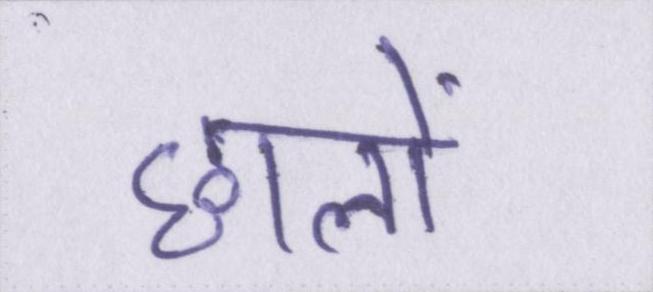 छालों